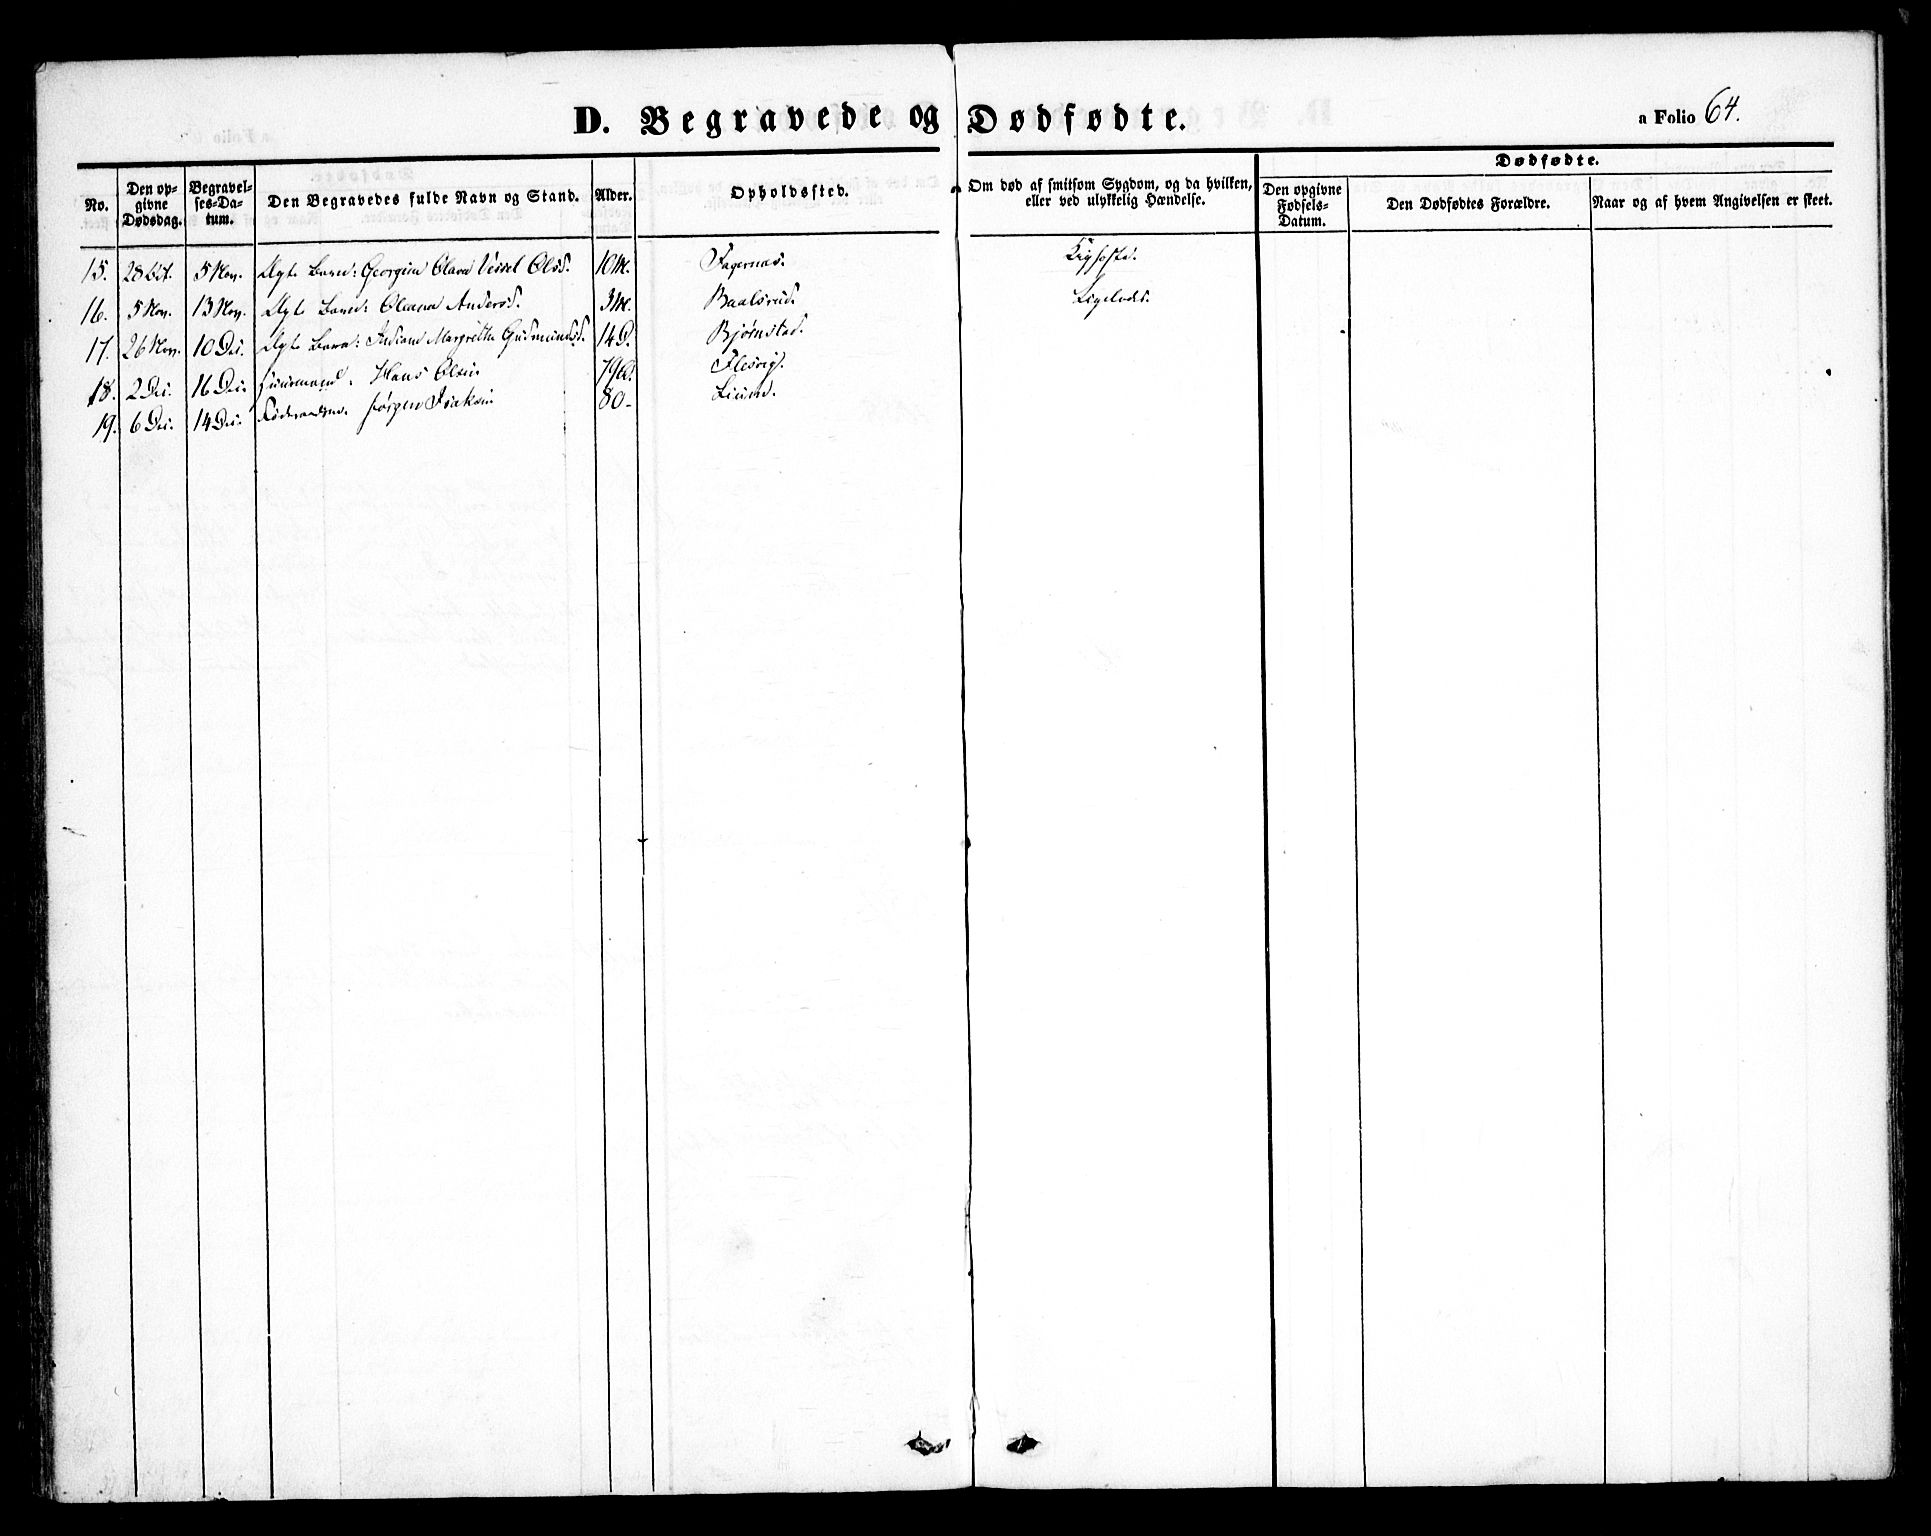 D. Begravede og Dødfødte.
a Folio 64.
No.
Den op-
givne
Dødsdag.
Begravel-
ses-Da-
tum.
Den Begravedes fulde Navn og Stand.
Alder.
Opholdssted.
Om død af smitsom Sygdom, og da hvilken,
eller ved ulykkelig Hændelse.
Dødfødte.
Den opgivne
Fødsels-
Datum.
Den Dødfødtes Forældre.
Naar og af hvem Angivelsen er skeet.
15. 28 Oct. 5 Nov. Ægte Barn: Georgine Olava Olsd. 10 M. Fagernæs. Kighoste.
16. 5 Nov. 13 Nov. Ægte Barn: Oleana Andersd. 3 M. Baalsrud. Ligeledes.
17. 26 Nov. 10 Dec. Ægte Barn: Margrethe Gudmundsd. 14 D. Bjørnstad.
18. 2 Dec. 16 Dec. Huusmand. Hans Olsen 79 A. Flesvig.
19. 6 Dec. 14 Dec. Jørgen Isaksen 80 -